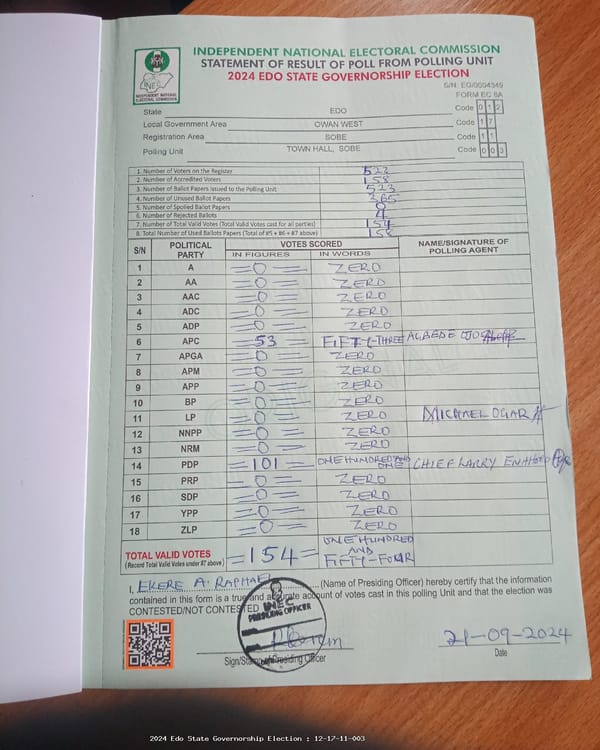 INDEPENDENT NATIONAL ELECTORAL COMMISSION
STATEMENT OF RESULT OF POLL FROM POLLING UNIT
2024 EDO STATE GOVERNORSHIP ELECTION
INEC
INDEPENDENT NATIONAL ELECTORAL COMMISSION
S/N: EG/0004349
FORM EC 8A
State EDO Code 0 1 2
Local Government Area OWAN WEST Code 1 7
Registration Area SOBE Code 1 1
Polling Unit TOWN HALL, SOBE Code 0 0 3
1. Number of Voters on the Register 523
2. Number of Accredited Voters 158
3. Number of Ballot Papers Issued to the Polling Unit 523
4. Number of Unused Ballot Papers 365
5. Number of Spoiled Ballot Papers 0
6. Number of Rejected Ballots 4
7. Number of Total Valid Votes (Total Valid Votes cast for all parties) 154
8. Total Number of Used Ballots Papers (Total of #5 + #6 + #7 above) 158
S/N POLITICAL PARTY VOTES SCORED NAME/SIGNATURE OF POLLING AGENT
IN FIGURES IN WORDS
1 A =0= ZERO
2 AA =0= ZERO
3 AAC =0= ZERO
4 ADC =0= ZERO
5 ADP =0= ZERO
6 APC =53= FIFTY-THREE AGBEDE
7 APGA =0= ZERO
8 APM =0= ZERO
9 APP =0= ZERO
10 BP =0= ZERO
11 LP =0= ZERO MICHAEL OGAR
12 NNPP =0= ZERO
13 NRM =0= ZERO
14 PDP =101= ONE HUNDRED AND ONE CHIEF LARRY
15 PRP =0= ZERO
16 SDP =0= ZERO
17 YPP =0= ZERO
18 ZLP =0= ZERO
TOTAL VALID VOTES =154= ONE HUNDRED AND FIFTY-FOUR
(Record Total Valid Votes under #7 above)
I, EKERE A. RAPHAEL (Name of Presiding Officer) hereby certify that the information
contained in this form is a true and accurate account of votes cast in this polling Unit and that the election was
CONTESTED/NOT CONTESTED
INEC
PRESIDING OFFICER
21-09-2024
Sign/Stamp of Presiding Officer Date
2024 Edo State Governorship Election : 12-17-11-003